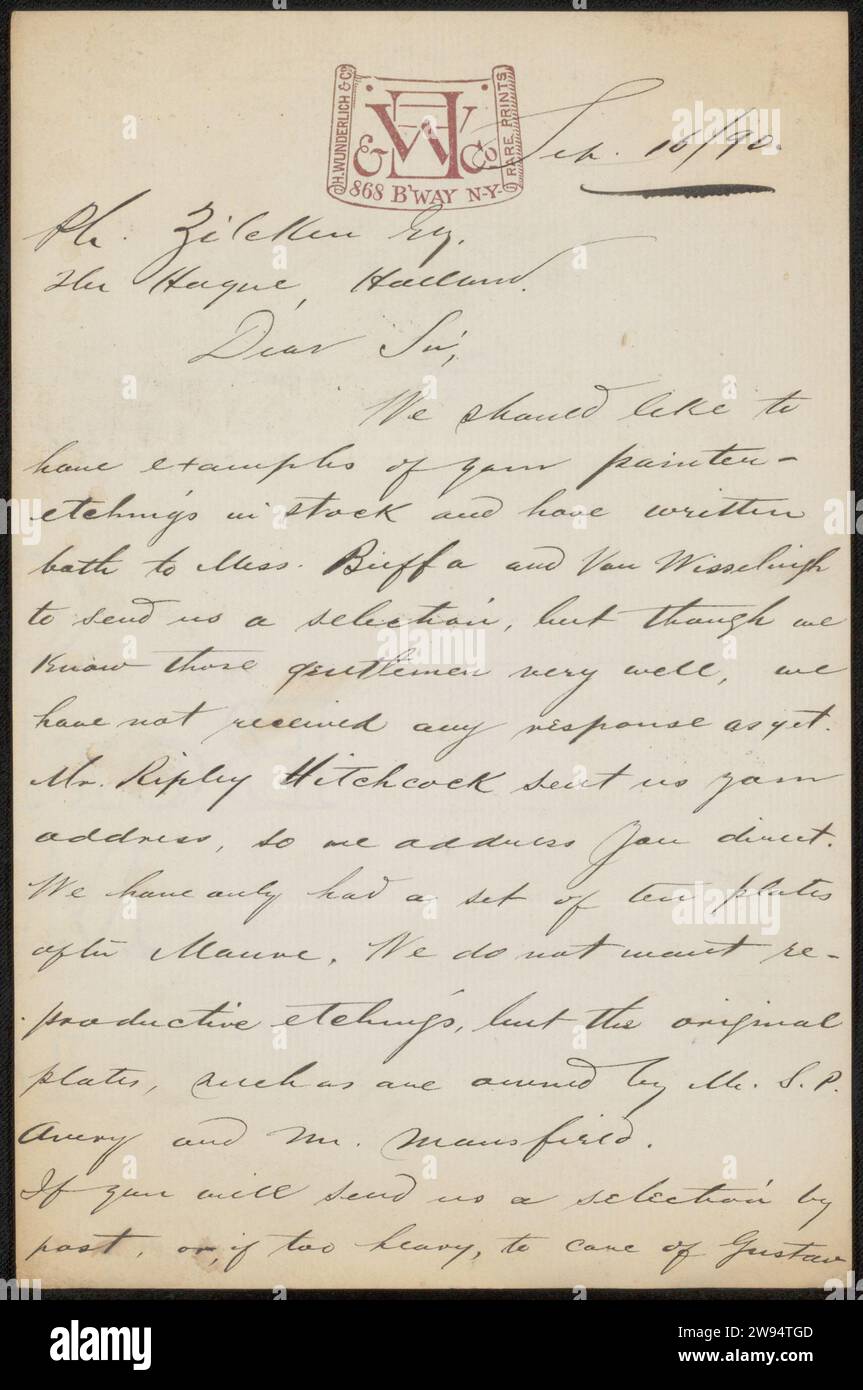 H. WUNDERLICH & CO.
RARE PRINTS
& W Co
868 B'WAY N-Y-
Sep. 16/90.
Ph. Zilcken Esq.
The Hague, Holland.
Dear Sir,
We should like to
have examples of your painter-
etchings in stock and have written
both to Mess. Buffa and Van Wisselingh
to send us a selection, but though we
know those gentlemen very well, we
have not received any response as yet.
Mr. Ripley Hitchcock sent us your
address, so we address you direct.
We have only had a set of ten plates
after Mauve. We do not want re-
productive etchings, but the original
plates, such as are owned by Mr. S. P.
Avery and Mr. Mansfield.
If you will send us a selection by
post, or, if too heavy, to care of Gustav
alamy
Image ID: 2W94TGD
www.alamy.com